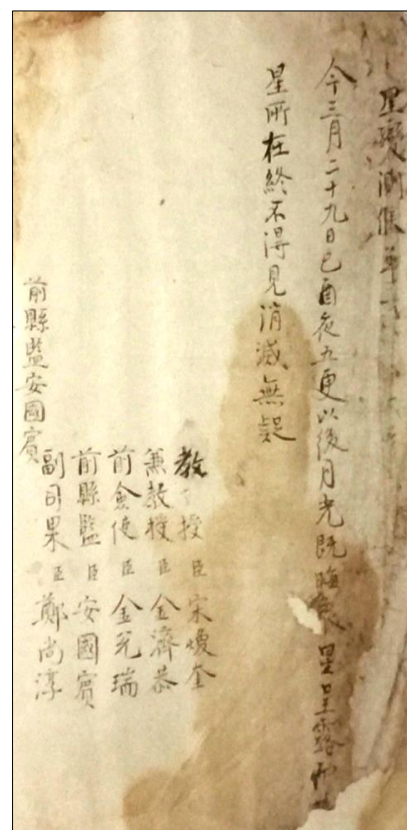 星變測候單子
今三月二十九日己酉夜五更以後月光既晦衆星呈露而
星所在終不得見消滅無疑
教授臣宋㷜奎
兼教授臣金濟恭
前僉使臣金兌瑞
前縣監臣安國賓
副司果臣鄭尚淳
前縣監安國賓